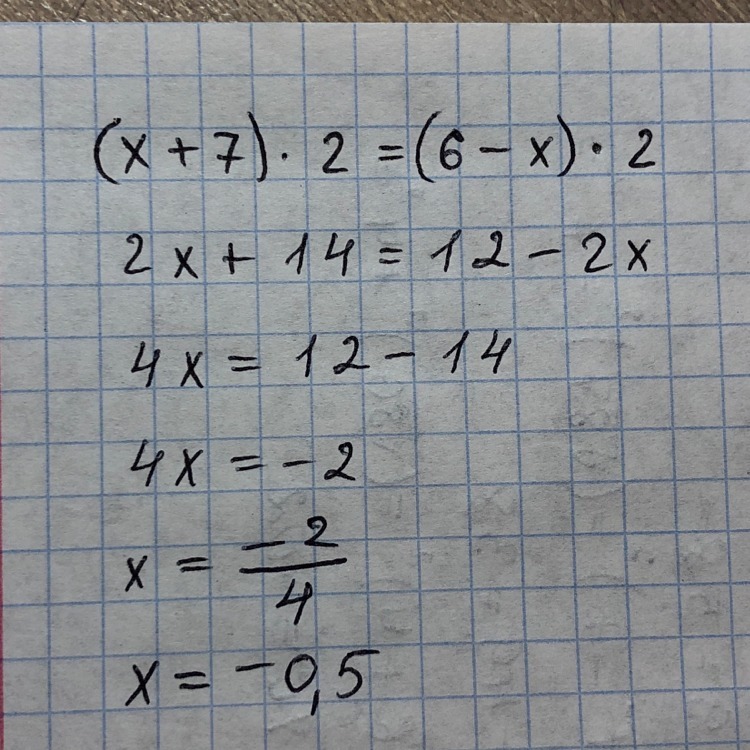 (x + 7) · 2 = (6 − x) · 2
2x + 14 = 12 − 2x
4x = 12 − 14
4x = −2
x = −2/4
x = −0,5